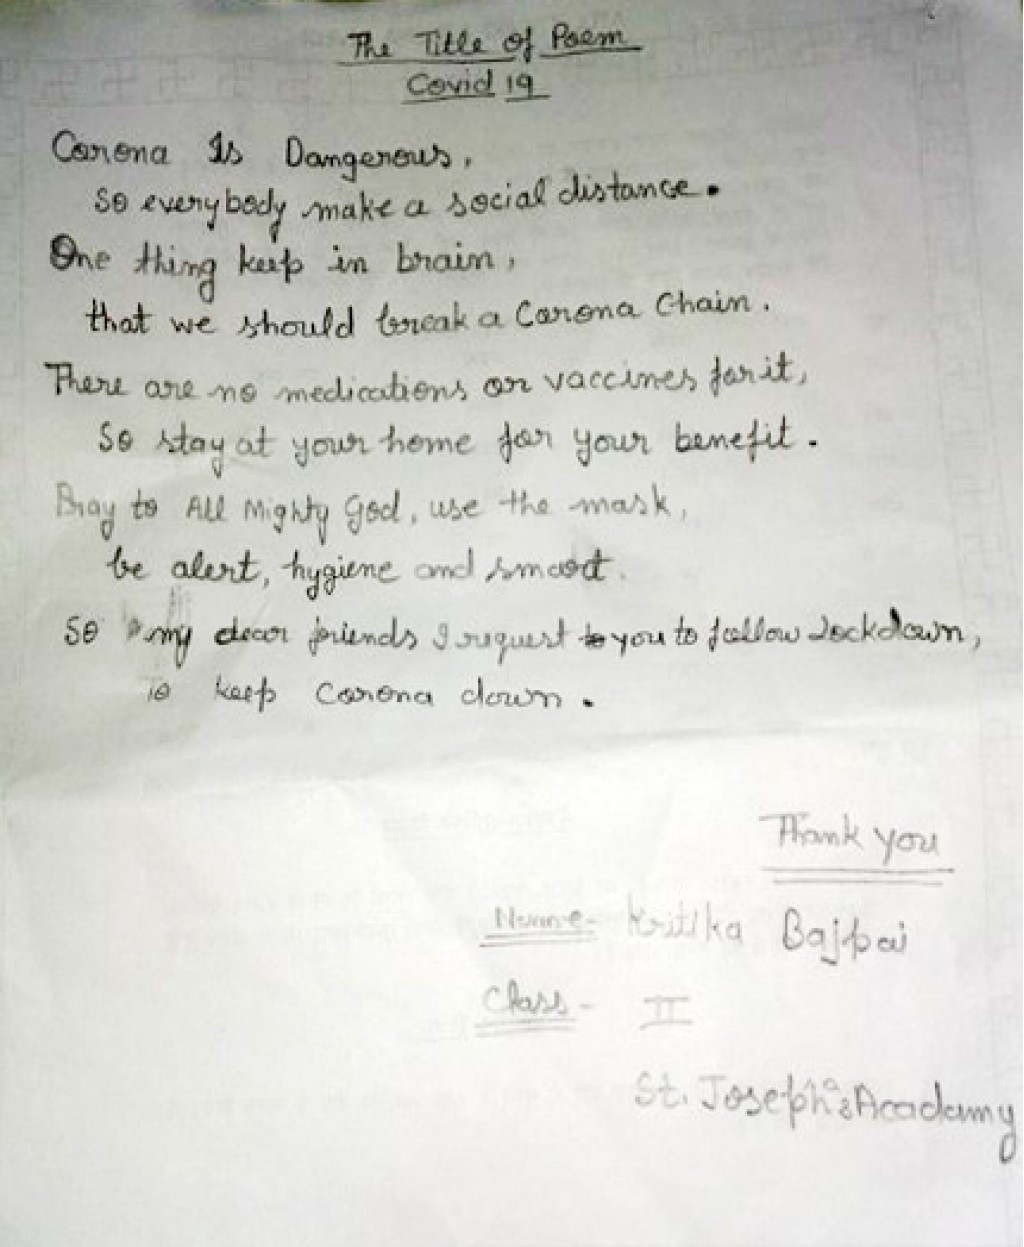 The Title of Poem
Covid 19
Corona Is Dangerous,
So everybody make a social distance.
One thing keep in brain,
that we should break a Corona Chain.
There are no medications or vaccines for it,
So stay at your home for your benefit.
Pray to All Mighty God, use the mask,
be alert, hygiene and smart.
So my dear friends I request to you to follow Lockdown,
to keep Corona down.
Thank you
Name- Kritika Bajpai
Class - II
St. Joseph's Acadamy